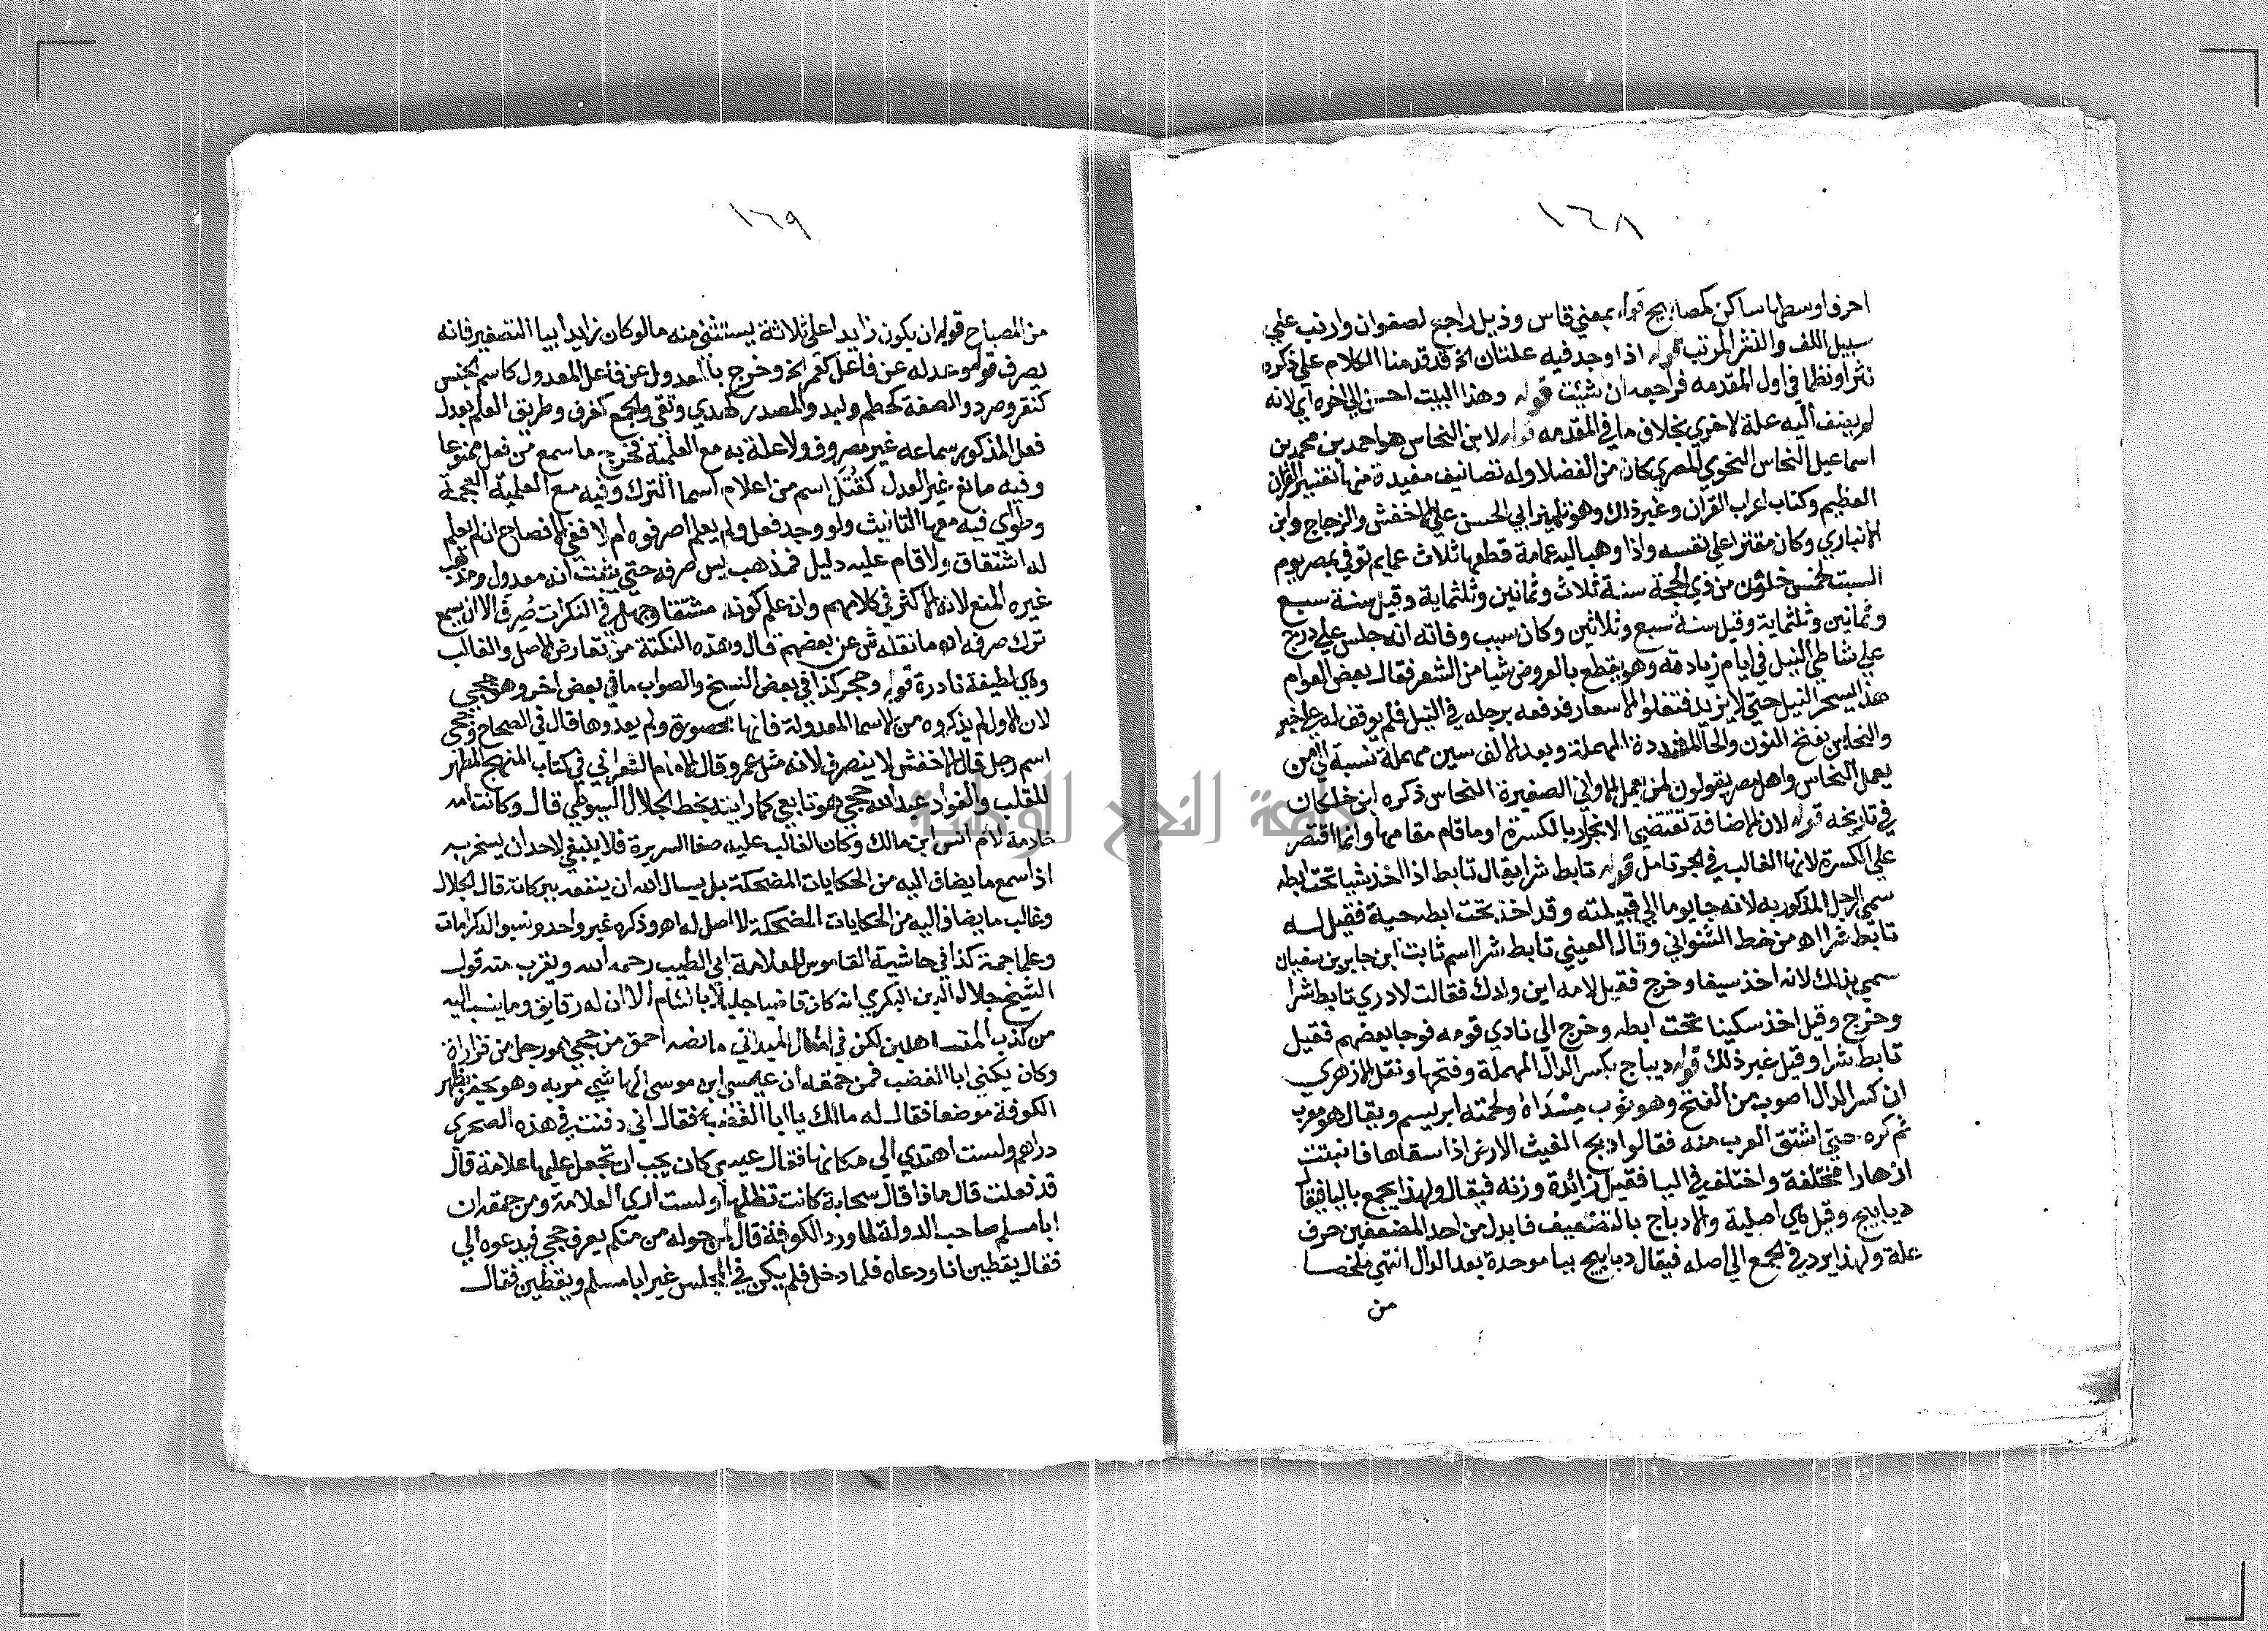 ١٦٨
احرف اوسطها ساكن كمصابيح قوله بمعني قاس وذيل راجع لصفوان وارنب علي
سبيل اللف والنشر المرتب قوله اذا وجد فيه علتان الخ قد قدمنا الكلام علي ذكره
نثرا ونظما في اول المقدمه فراجعه ان شئت قوله وهذا البيت احسن الي اخره اي لانه
لم يضف اليه علة لاخري بخلاف ما في المقدمه قوله لابن النحاس هو احمد بن محمد بن
اسماعيل النحاس النحوي المصري كان من الفضلا وله تصانيف مفيدة منها تفسير القران
العظيم وكتاب اعراب القران وغير ذلك وهو تلميذ ابي الحسن علي الاخفش والزجاج وابن
الانباري وكان مقترا علي نفسه واذا وهب اليه عمامة قطعها ثلاث عمايم توفي بمصر يوم
السبت لخمس خلون من ذي الحجة سنة ثلاث وثمانين وثلثماية وقيل سنة سبع
وثمانين وثلثماية وقيل سنة سبع وثلاثين وكان سبب وفاته انه جلس علي درج
علي شاطي النيل في ايام زيادته وهو يقطع بالعروض شيا من الشعر فقال بعض العوام
هذا يسحر النيل حتي لا يزيد فتغلوا الاسعار فدفعه برجله في النيل فلم يوقف له علي خبر
والنحاس بفتح النون والحا المشددة المهملة وبعد الالف سين مهملة نسبة الي من
يعمل النحاس واهل مصر يقولون لمن يعمل الاواني الصفيرة النحاس ذكره ابن خلكان
في تاريخه قوله لان الاضافة تقتضي الانجرار بالكسرة او ما قام مقامها وانما اقتصر
علي الكسرة لانها الغالب في الجر تامل قوله تابط شرا يقال تابط اذا اخذ شيا تحت ابطه
سمي الرجل المذكور به لانه جا يوما الي قبيلته وقد اخذ تحت ابطه حية فقيل لـه
تابط شرا اه من خط الشنواني وقال العيني تابط شرا اسم ثابت ابن جابر بن سفيان
سمي بذلك لانه اخذ سيفا وخرج فقيل لامه اين ولدك فقالت لا ادري تابط شرا
وخرج وقيل اخذ سكينا تحت ابطه وخرج الي نادي قومه فوجا بعضهم فقيل
تابط شرا وقيل غير ذلك قوله ديباج بكسر الدال المهملة وفتحها ونقل الازهري
ان كسر الدال اصوب من الفتح وهو ثوب سداه ولحمته ابريسم ويقال هو معرب
ثم كره حتي اشتق العرب منه فقالوا دبج الغيث الارض اذا سقاها فانبتت
ازهارا مختلفة واختلف في اليا فقيل زائدة وزنه فيعال ولهذا يجمع باليا فيقال
ديابيج وقيل هي اصلية والاصل دباج بالتضعيف فابدل من احد المضعفين حرف
علة ولهذا يرد في الجمع الي اصله فيقال دبابيج ببا موحدة بعد الدال انتهي ملخصا
من
١٦٩
من المصباح قوله ان يكون زايدا علي ثلاثة يستثني منه ما لو كان زايدا بيا التصغير فانه
يصرف قوله وعدله عن فاعل كعمر الخ وخرج بالمعدول عن فاعل المعدول كاسم الجنس
كنقر وصرد والصفة كحطم ولبد والمصدر كهدي وتقي والجمع كغرف وطريق العلم بعدل
فعل المذكور سماعه غير مصروف ولا علة به مع العلمية فخرج ما سمع من فعل ممنوعا
وفيه مانع غير العدل كقُتَل اسم من اعلام اسما الترك وفيه مع العلمية العجمة
وطوي فيه معها التانيث ولو وجد فعل ولم يعلم اصرفوه ام لا ففي الافصاح ان لم يعلم
له اشتقاق ولا قام عليه دليل فمذهب يس صرفه حتي يثبت انه معدول ومذهب
غيره المنع لانه الاكثر في كلامهم وان علم كونه مشتقا وجهل في النكرات صُرِفَ الا ان يسمع
ترك صرفه اه ما نقله ش عن بعضهم قال وهذه النكتة من تعارض الاصل والغالب
وهي لطيفة نادرة قوله وحجر كذا في بعض النسخ والصواب ما في بعض اخر وهو جحي
لان الاول لم يذكروه من الاسما المعدولة فانها محصورة ولم يعدوها قال في الصحاح وجحي
اسم رجل قال الاخفش لا ينصرف لانه مثل عمر وقال الامام الشعراني في كتاب المنهج المطهر
للقلب والفواد عبد الله جحي هو تابعي كما رايته بخط الجلال السيوطي قال وكانت امه
خادمة لام انس بن مالك وكان الغالب عليه صفا السريرة فلا ينبغي لاحد ان يسخر به
اذا سمع ما يضاف اليه من الحكايات المضحكة بل يسال الله ان ينفعه ببركاته قال الجلال
وغالب ما يضاف اليه من الحكايات المضحكة لا اصل له اهـ وذكره غير واحد ونسبوا له كرامات
وعلما جمة كذا في حاشية القاموس للعلامة ابي الطيب رحمه الله ويقرب منه قول
الشيخ جلال الدين البكري انه كان قاضيا جليلا بالشام الا ان له رقايق وما ينسب اليه
من كذب المتساهلين لكن في امثال الميداني ما نصه احمق من جحي هو رجل من فزارة
وكان يكني ابا الغضب فمن حمقه ان عيسي ابن موسي الهاشمي مر به وهو يحفر بظهر
الكوفة موضعا فقال له مالك يا ابا الغضب فقال اني دفنت في هذه الصحري
دراهم ولست اهتدي الي مكانها فقال عيسي كان يجب ان تجعل عليها علامة قال
قد فعلت قال ماذا قال سحابة كانت تظلها ولست اري العلامة ومن حمقه ان
ابا مسلم صاحب الدولة لما ورد الكوفة قال لمن حوله من منكم يعرف جحي فيدعوه الي
فقال يقطين انا ودعاه فلما دخل فلم يكن في المجلس غير ابا مسلم ويقطين فقال
جامعة النجاح الوطنية